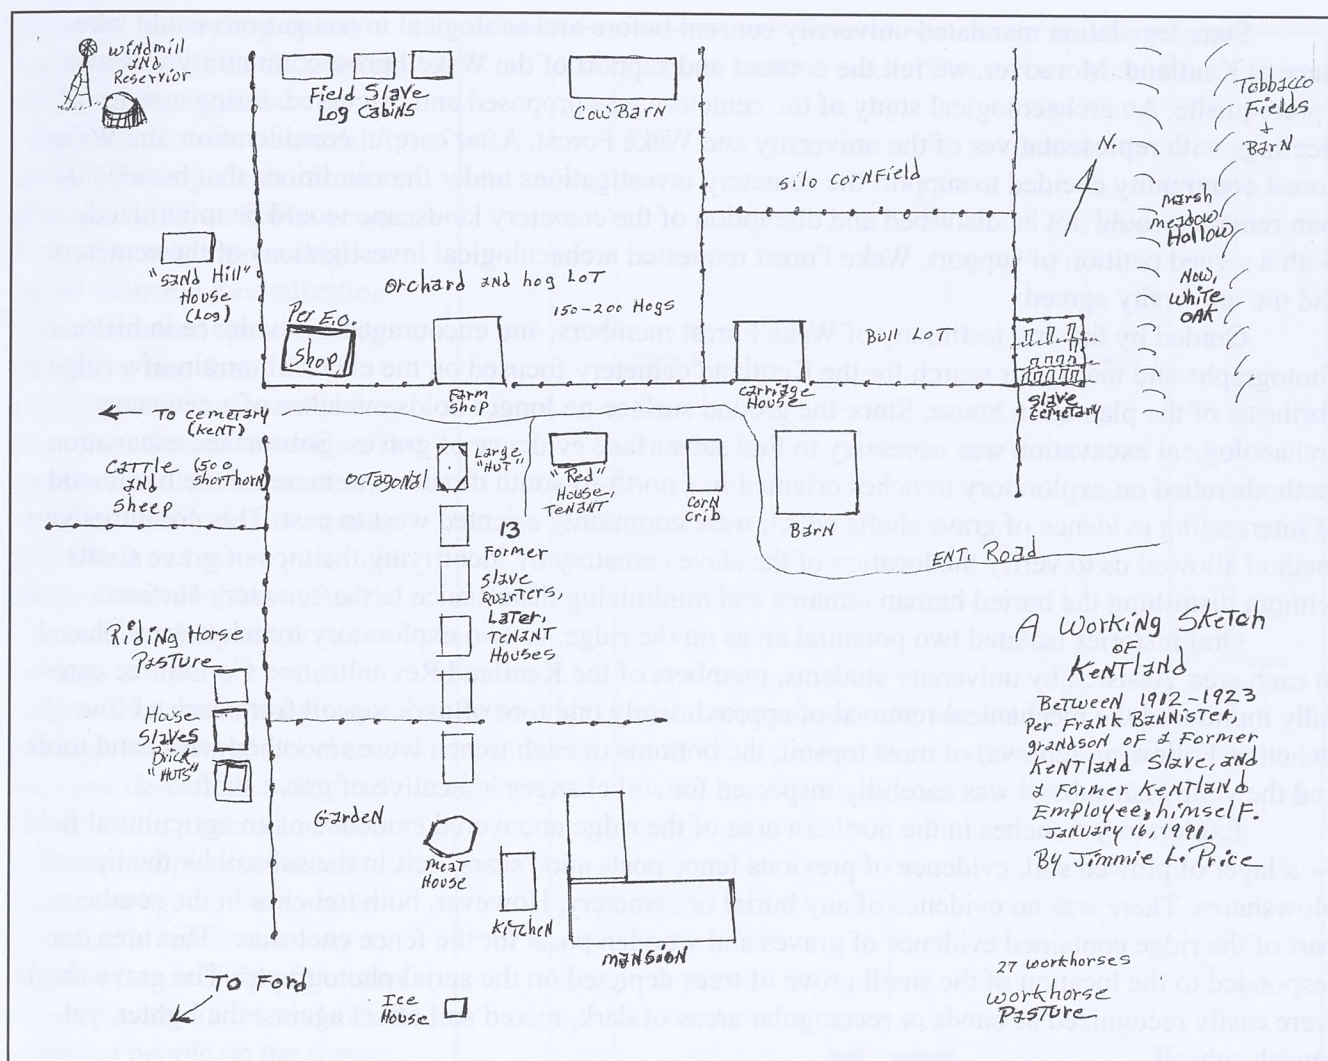 Windmill
and
Reservior
Field Slave
Log Cabins
Cow Barn
Tobbacco
Fields
+
Barn
N.
Silo Cornfield
Marsh
meadow
Hollow
Now,
White
Oak
"Sand Hill"
House
(Log)
Orchard and hog LoT
150-200 Hogs
Per E.O.
Shop
Bull LoT
Farm
Shop
Carriage
House
Slave
Cemetary
To cemetary
(Kent)
Cattle
and
Sheep
(500
Shorthorn)
Octagonal
Large
"HuT"
"Red"
House,
Tenant
Corn
Crib
Barn
Ent. Road
13
Former
Slave
Quarters,
Later,
Tenant
Houses
Riding Horse
Pasture
House
Slaves
Brick
"HuTs"
Garden
Meat
House
Kitchen
Mansion
To Ford
Ice
House
A Working Sketch
of
Kentland
Between 1912-1923
Per Frank Bannister,
grandson of a Former
Kentland Slave, and
a Former Kentland
Employee, himself.
January 16, 1991.
By Jimmie L. Price
27 workhorses
Workhorse
Pasture